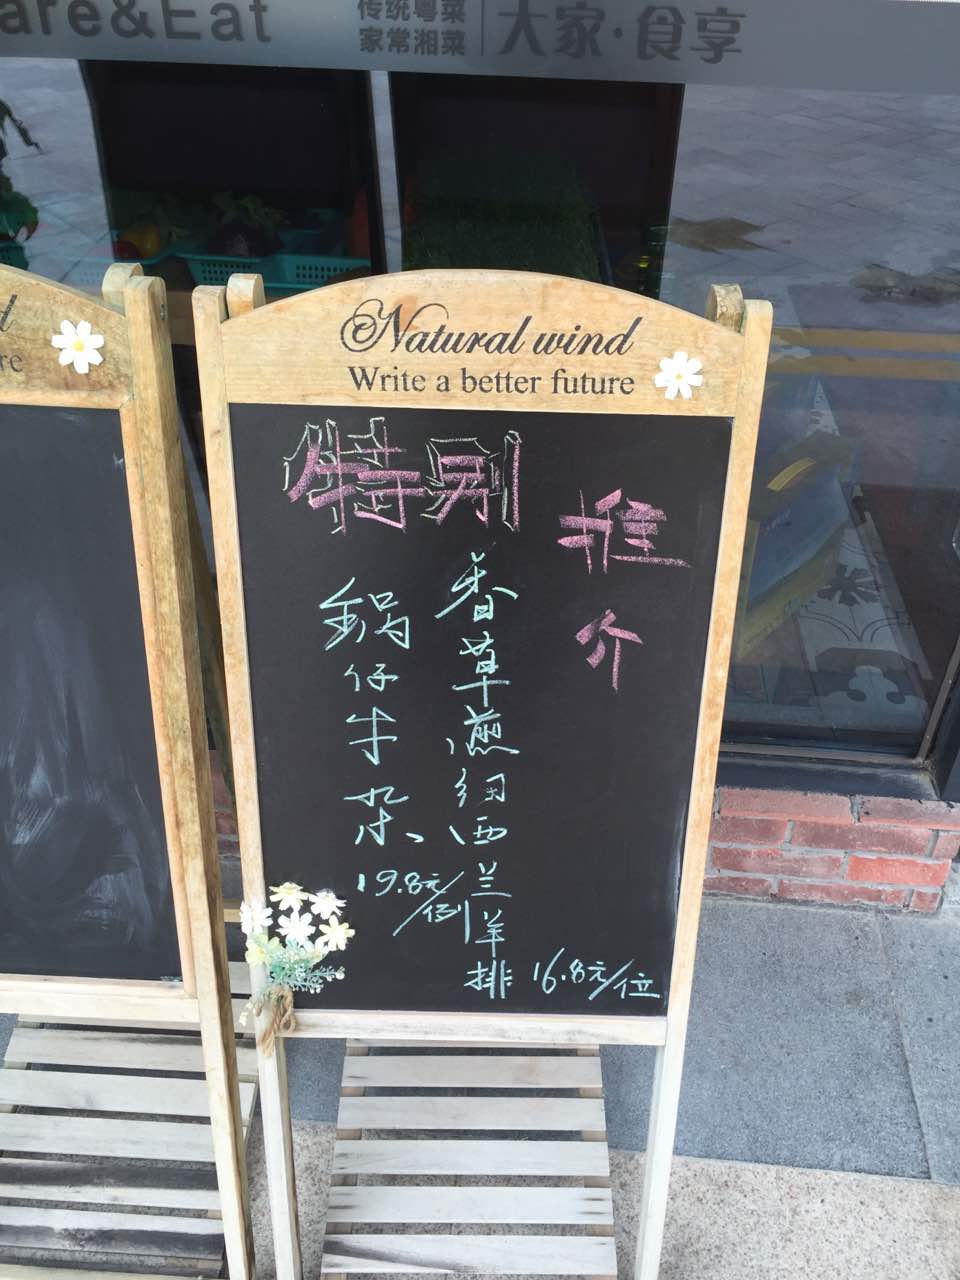 are&Eat
传统粤菜
家常湘菜
大家·食享
Natural wind
Write a better future
特别
推介
香草煎纽西兰羊排 16.8元/位
锅仔牛杂 19.8元/例